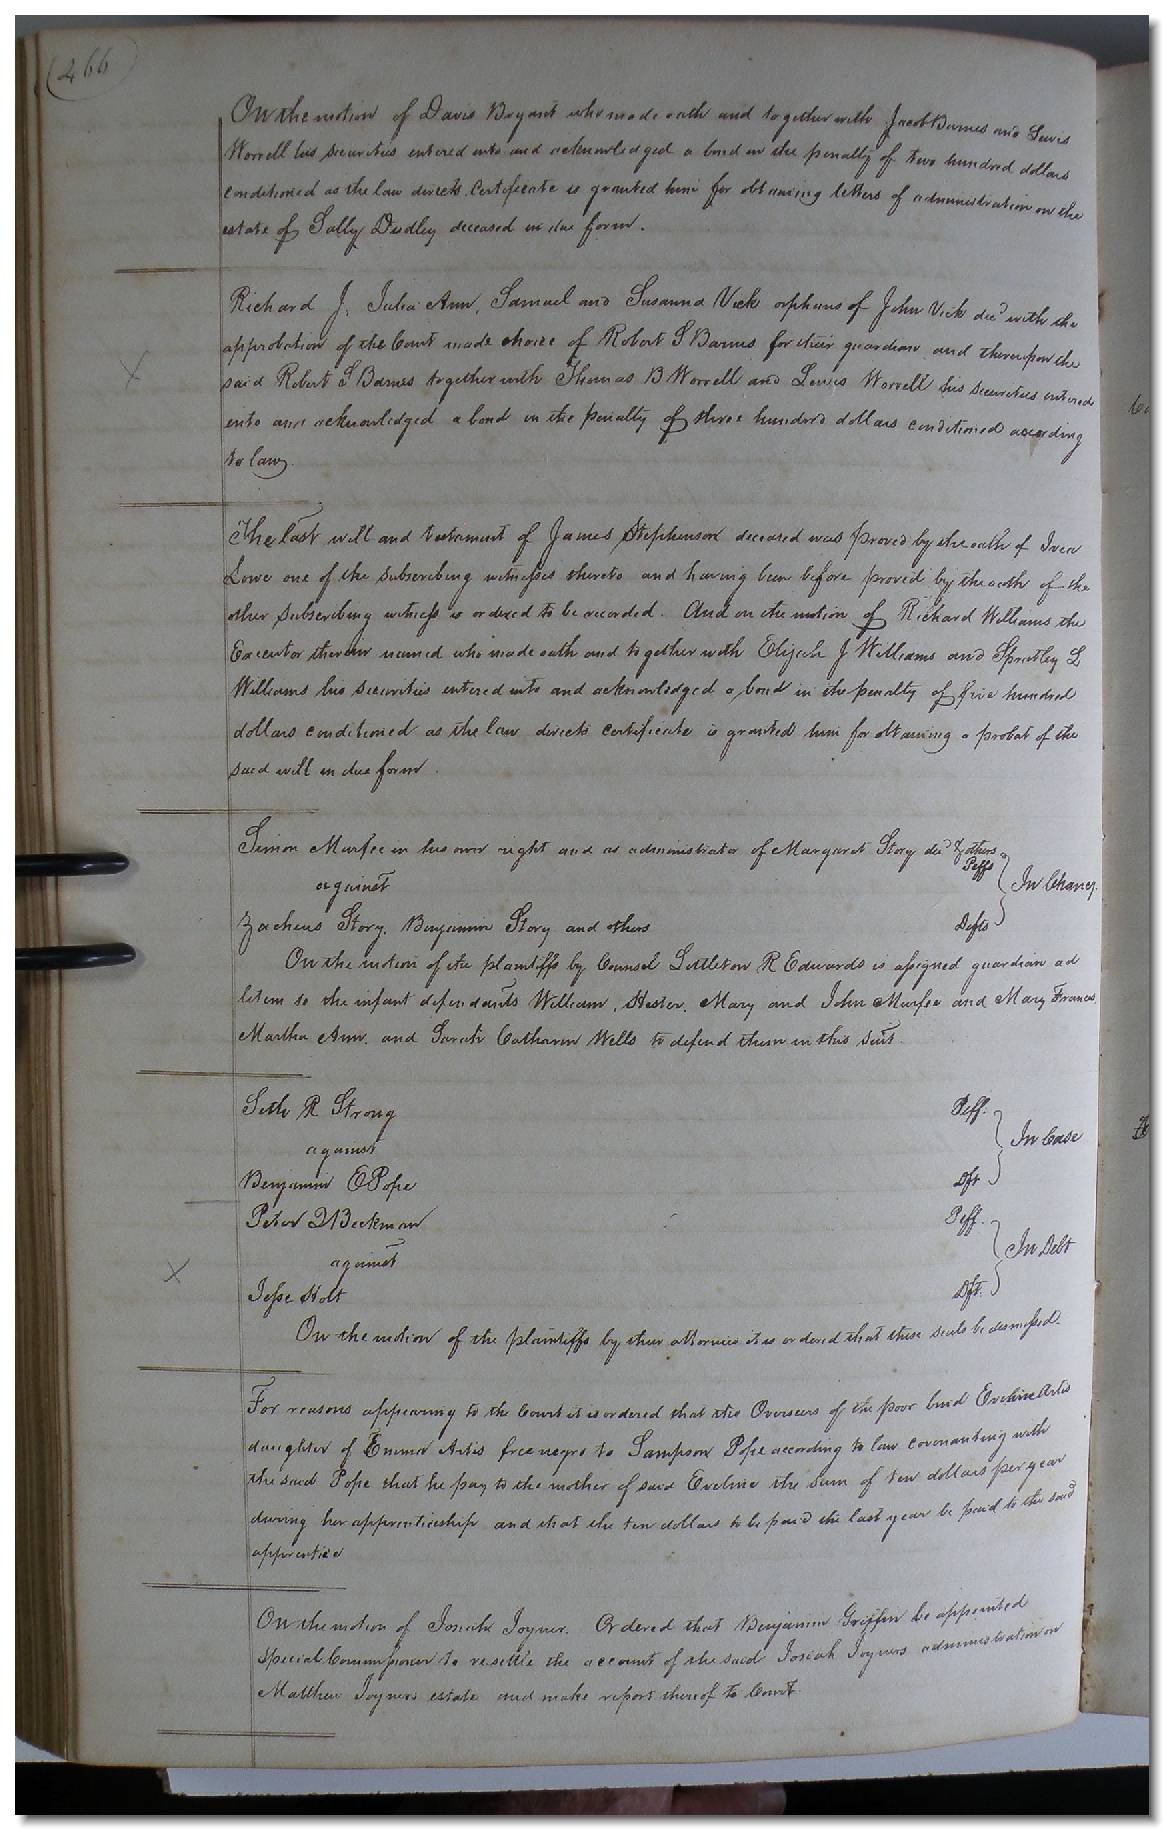 466
On the motion of Davis Bryant who made oath and together with Jacob Barnes and Lewis
Worrell his securities entered into and acknowledged a bond in the penalty of two hundred dollars
conditioned as the law directs certificate is granted him for obtaining letters of administration on the
estate of Sally Dudley deceased in due form.
Richard J, Julia Ann, Samuel and Susanna Vick orphans of John Vick decd with the
approbation of the Court made choice of Robert S Barnes for their guardian and thereupon the
said Robert S Barnes together with Thomas B Worrell and Lewis Worrell his securities entered
into and acknowledged a bond in the penalty of three hundred dollars conditioned according
to law.
The last will and testament of James Stephenson deceased was proved by the oath of
Lowe one of the subscribing witnesses thereto and having been before proved by the oath of the
other subscribing witness is ordered to be recorded. And on the motion of Richard Williams the
Executor therein named who made oath and together with Elijah J Williams and Spratley L
Williams his securities entered into and acknowledged a bond in the penalty of five hundred
dollars conditioned as the law directs certificate is granted him for obtaining a probat of the
said will in due form.
Simon Murfee in his own right and as administrator of Margaret Story decd & others
Peffs
against
In Chancy.
Zacheus Story, Benjamin Story and others Defts
On the motion of the plaintiffs by Counsel Littleton R Edwards is assigned guardian ad
litem to the infant defendants William, Hester, Mary and John Murfee and Mary Frances,
Martha Ann, and Sarah Catharine Wells to defend them in this suit.
Seth R Strong Peff.
against In Case
Benjamin E Pope Dft
Peter Beekman Peff.
against In Debt
Jesse Holt Dft.
On the motion of the plaintiffs by their attornies it is ordered that these suits be dismissed.
For reasons appearing to the Court it is ordered that the Overseers of the poor bind Eveline Artis
daughter of Emma Artis free negro to Sampson Pope according to law covenanting with
the said Pope that he pay to the mother of said Eveline the sum of ten dollars per year
during her apprenticeship and that the ten dollars to be paid the last year be paid to the said
apprentice
On the motion of Josiah Joyner. Ordered that Benjamin Griffin be appointed
Special Commissioner to resettle the account of the said Josiah Joyners administration on
Matthew Joyners estate and make report thereof to Court.